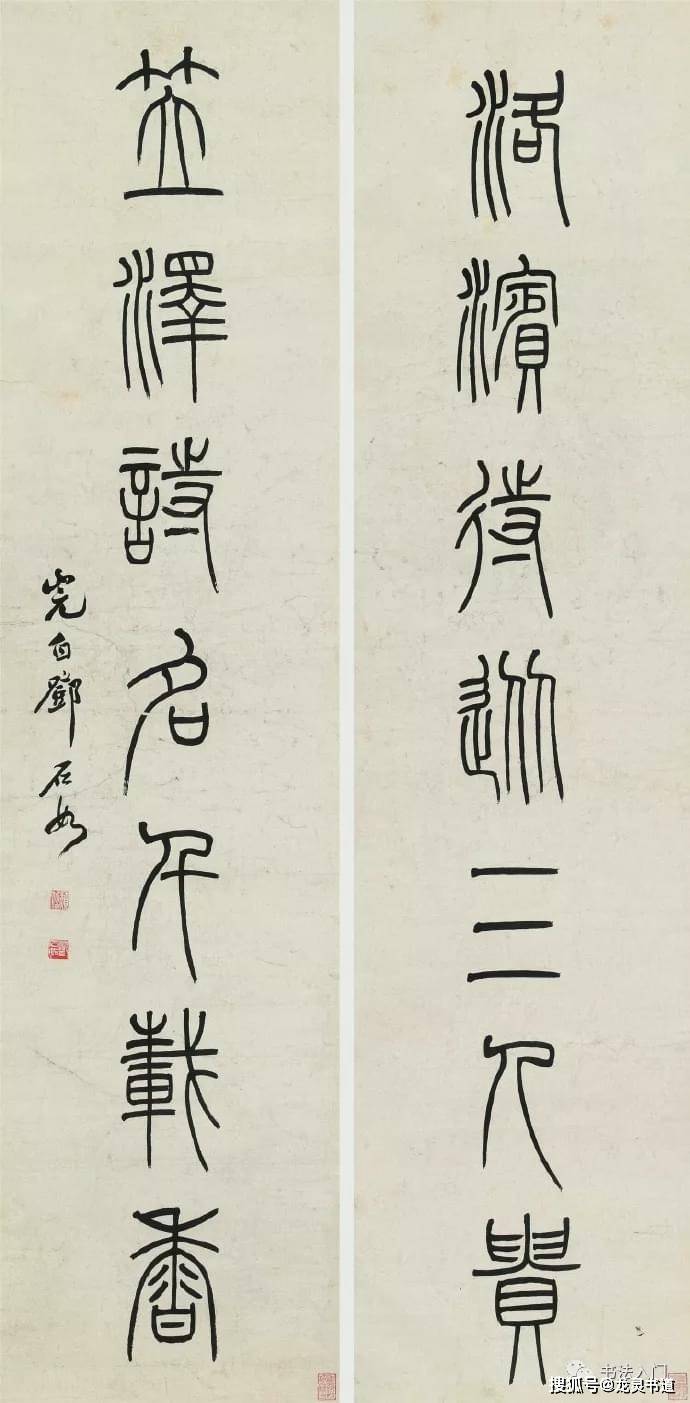 洛濱侍從三人貴
笠澤詩名千載香
完白鄧石如
书法入门
搜狐号@龙灵书道